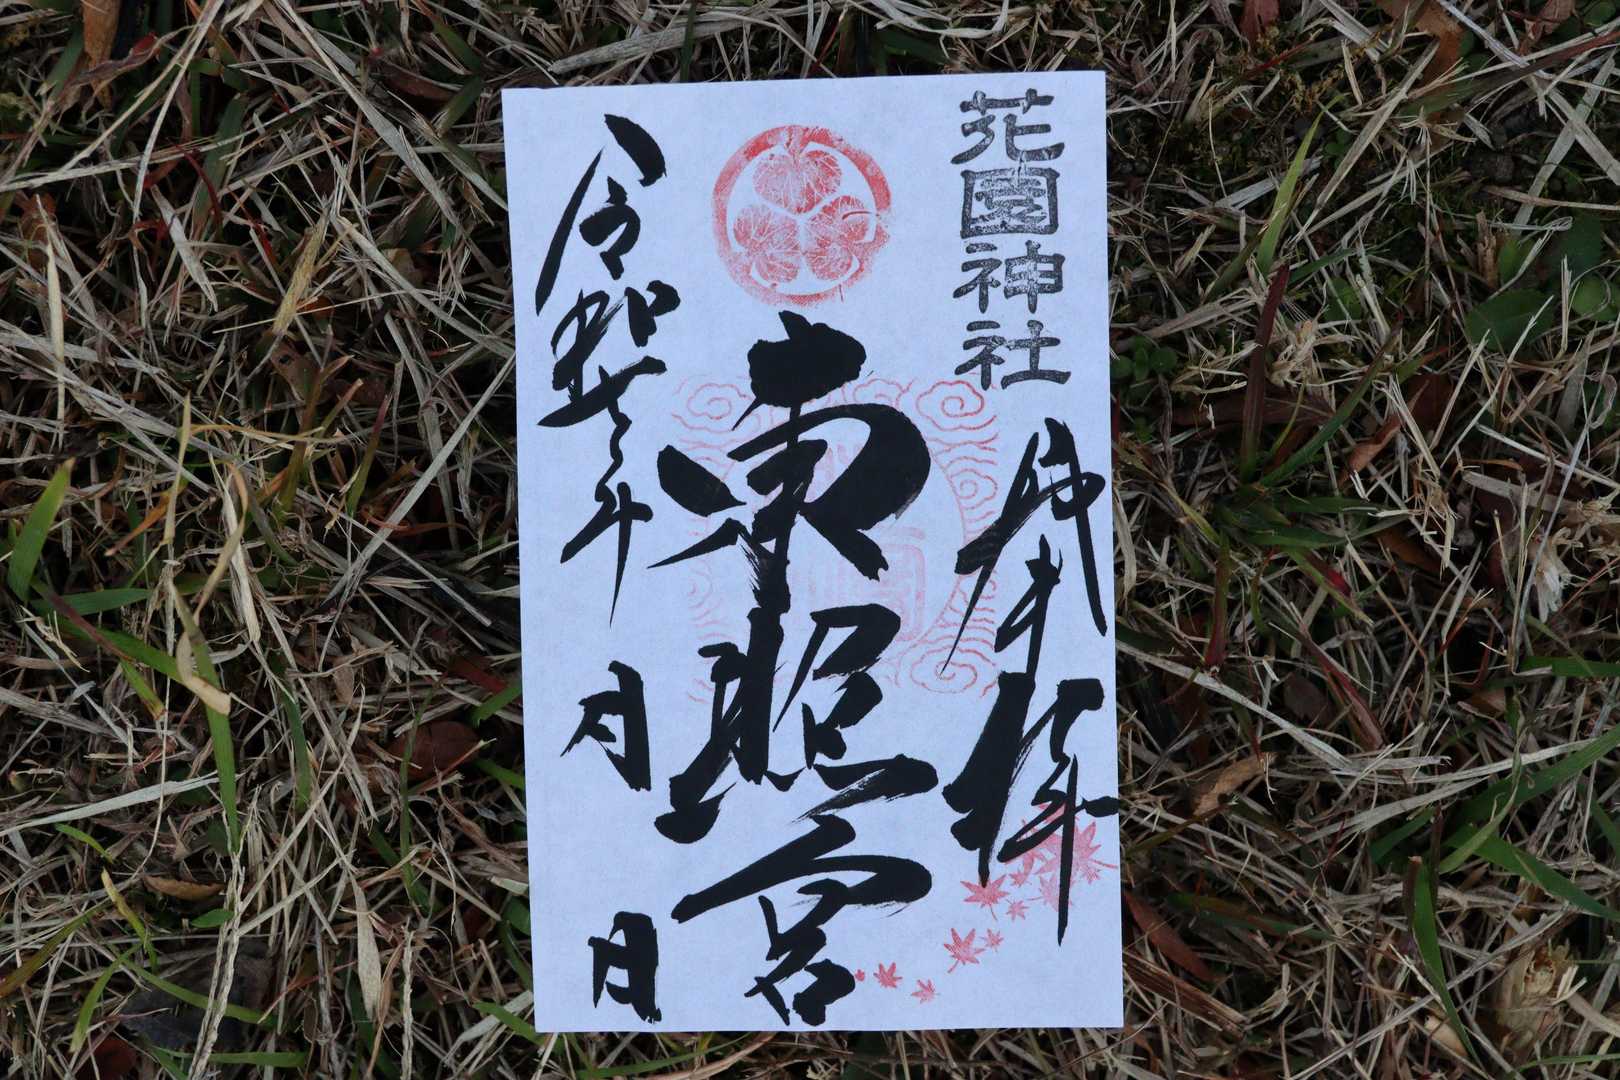 花園神社
拝
東照宮
令和年
月
日